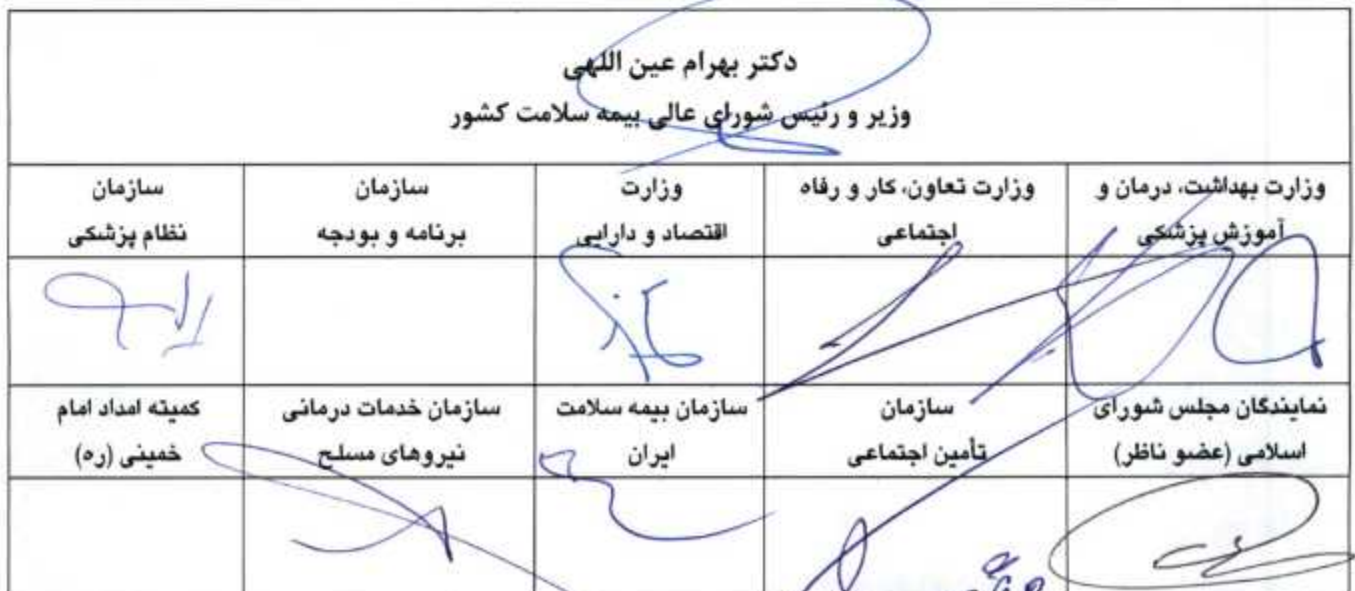 دکتر بهرام عین اللهی
وزیر و رئیس شورای عالی بیمه سلامت کشور
وزارت بهداشت، درمان و
آموزش پزشکی
وزارت تعاون، کار و رفاه
اجتماعی
وزارت
اقتصاد و دارایی
سازمان
برنامه و بودجه
سازمان
نظام پزشکی
نمایندگان مجلس شورای
اسلامی (عضو ناظر)
سازمان
تأمین اجتماعی
سازمان بیمه سلامت
ایران
سازمان خدمات درمانی
نیروهای مسلح
کمیته امداد امام
خمینی (ره)